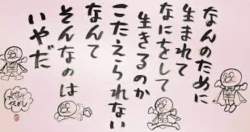 なんのために
生まれて
なにをして
生きるのか
こたえられない
なんて
そんなのは
いやだ